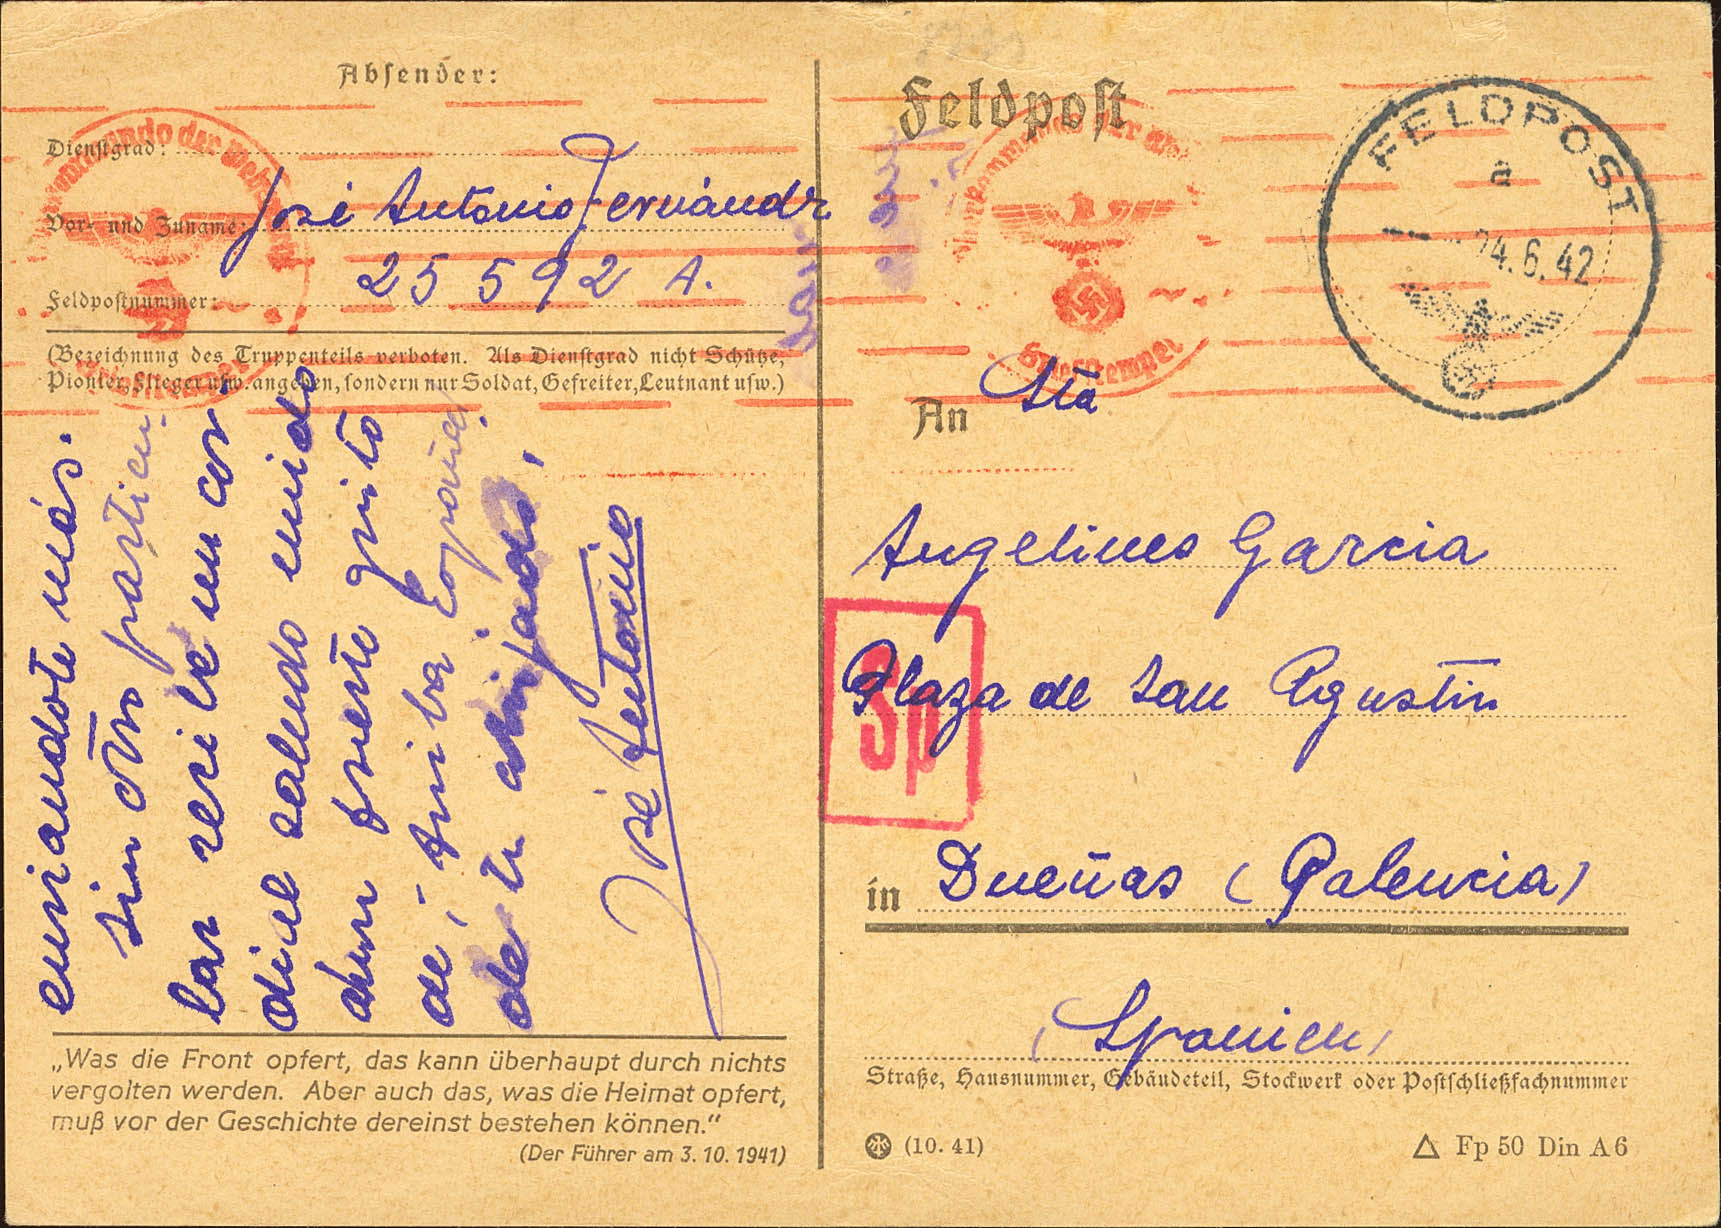 Absender:
Dienstgrad:
Vor- und Zuname: José Antonio Fernández
25 592 A.
Feldpostnummer:
(Bezeichnung des Truppenteils verboten. Als Dienstgrad nicht Schütze,
Pionier, Flieger usw. angeben, sondern nur Soldat, Gefreiter, Leutnant usw.)
más.
Sin otro particu
lar recibe un cor
dial saludo unido
a un fuerte grito
de, Arriba España
de tu ahijado,
José Antonio
„Was die Front opfert, das kann überhaupt durch nichts
vergolten werden. Aber auch das, was die Heimat opfert,
muß vor der Geschichte dereinst bestehen können.“
(Der Führer am 3. 10. 1941)
Feldpost
FELDPOST
a
14.6.42
Briefstempel
An Sta
Angelines Garcia
Plaza de San Agustin
Sp
in Dueñas (Palencia)
(Spanien)
Straße, Hausnummer, Gebäudeteil, Stockwerk oder Postschließfachnummer
(10. 41)
Fp 50 Din A6